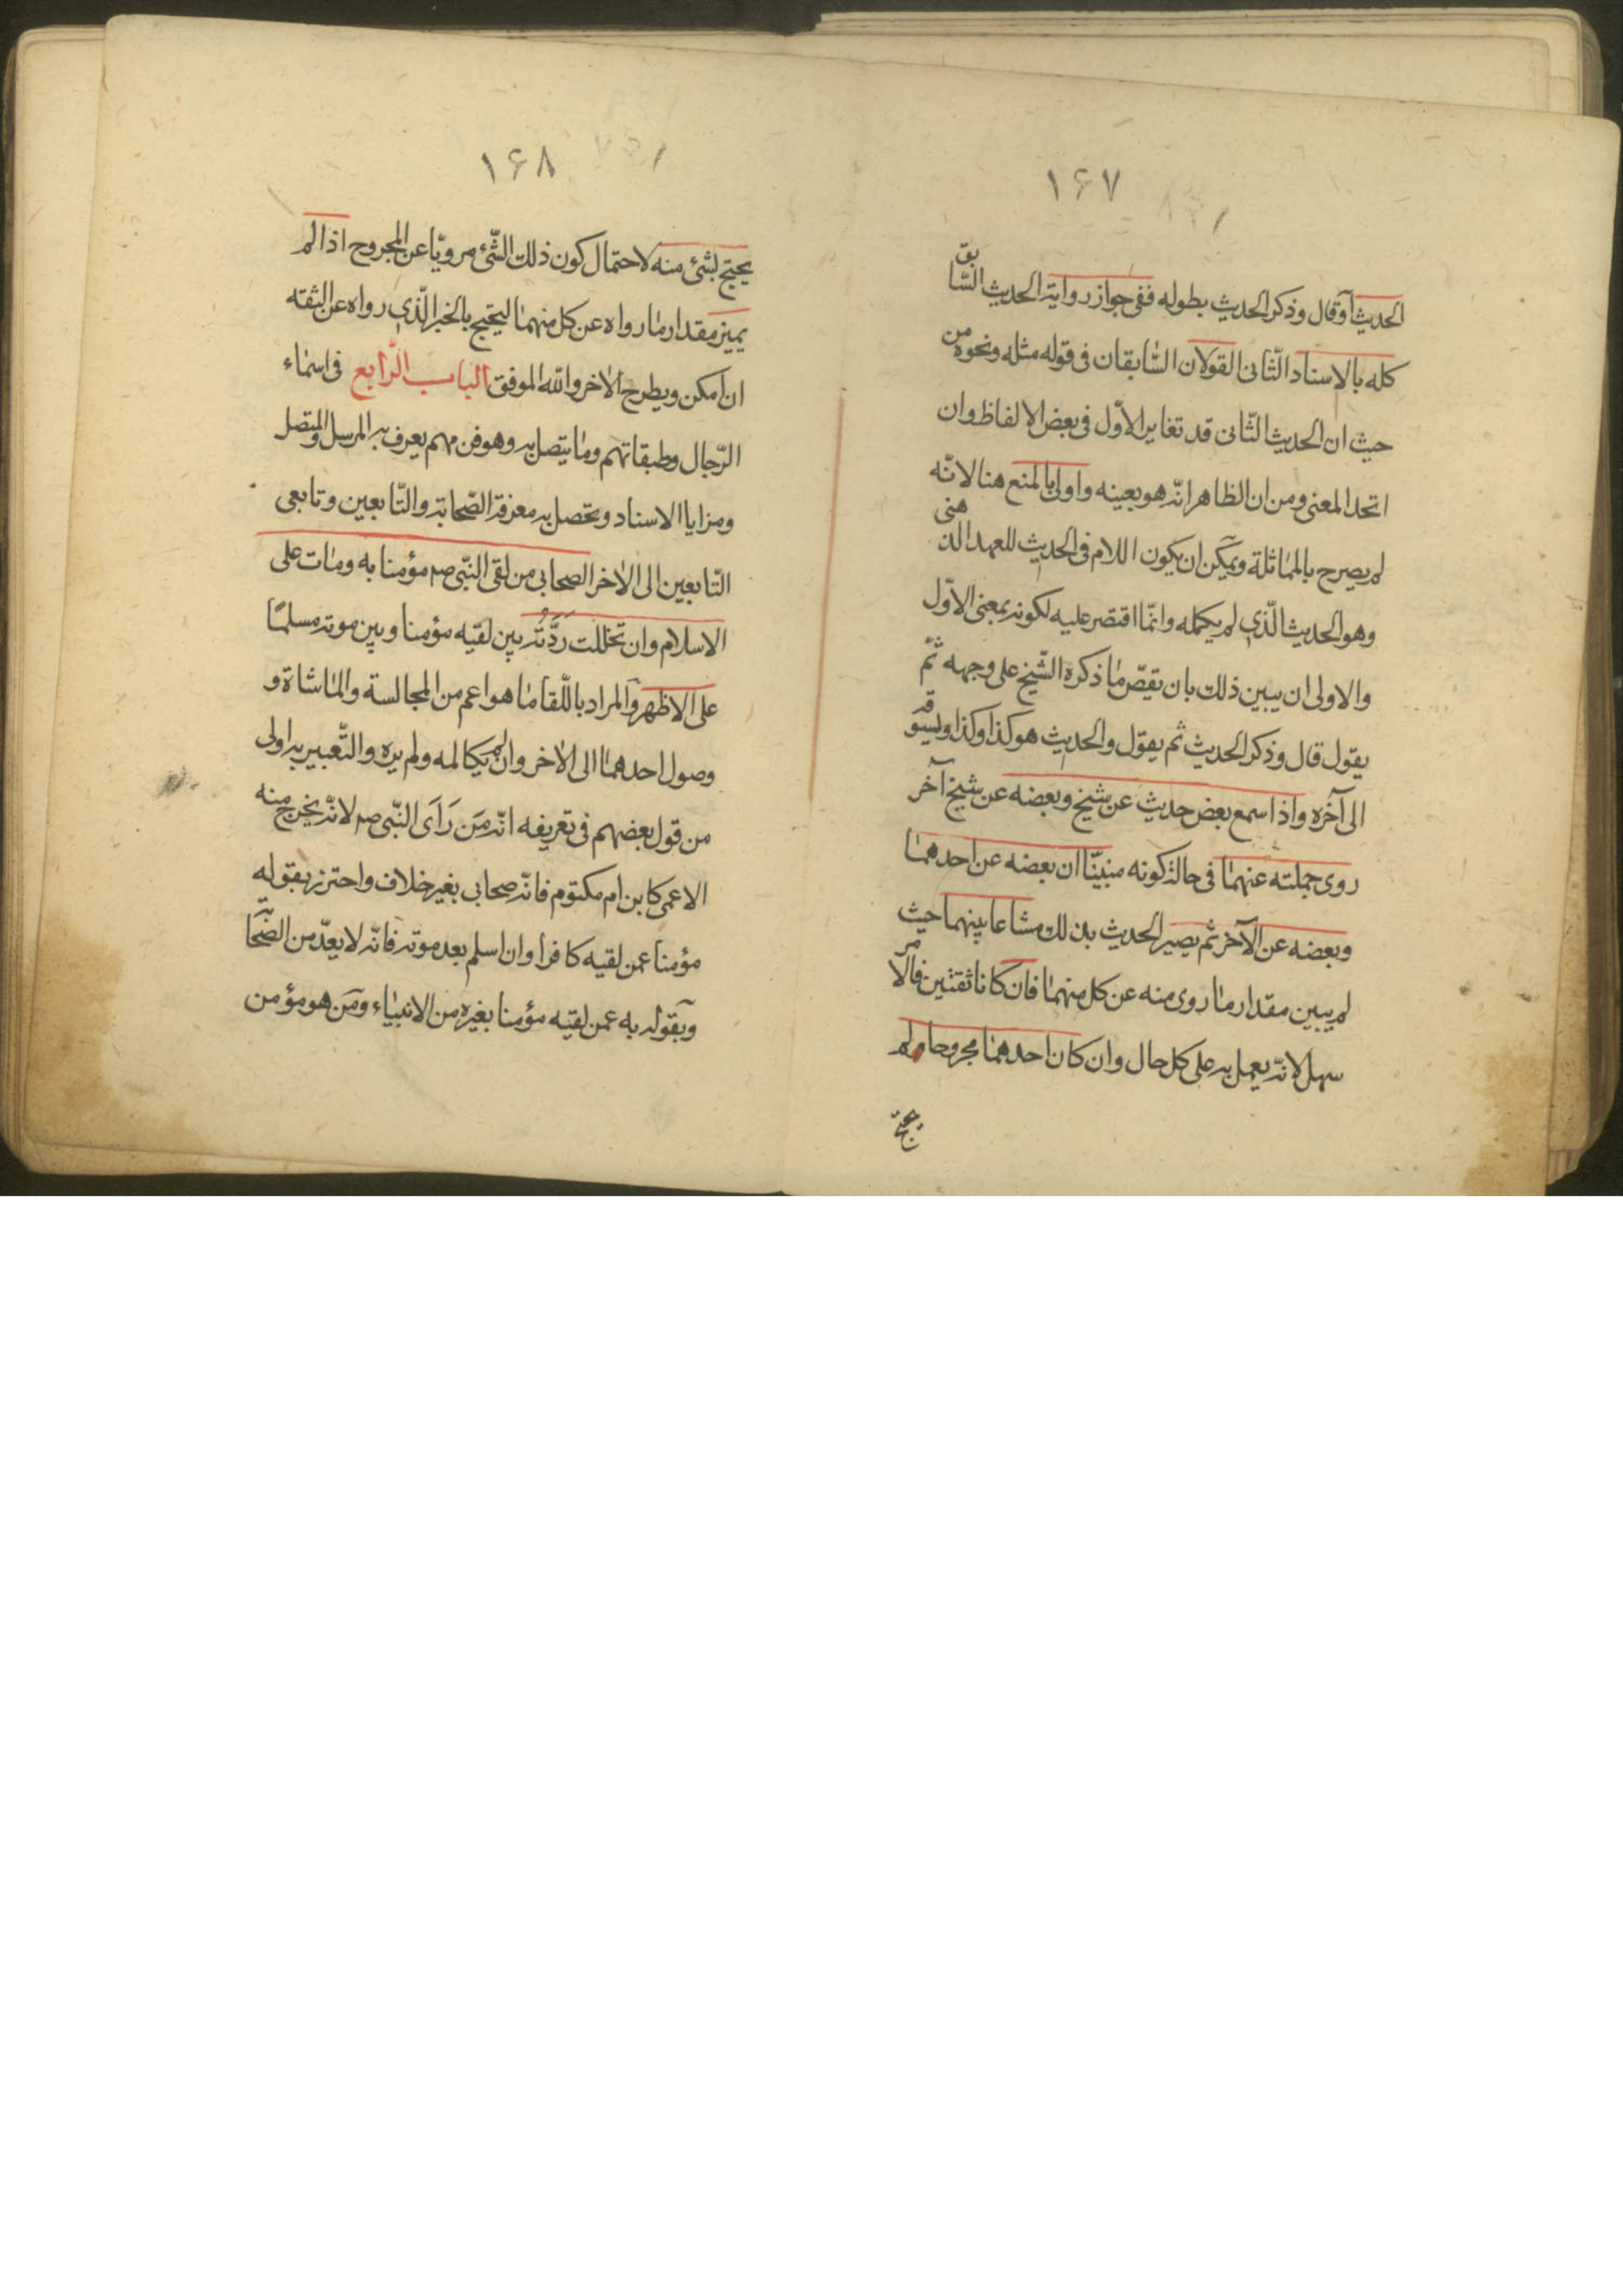 ۱۶۷
الحديث او قال وذكر الحديث بطوله ففى جواز رواية الحديث السّابق
كله بالاسناد الثّانى القولان السّابقان فى قوله مثله ونحوه من
حيث ان الحديث الثّانى قد تغاير الاوّل فى بعض الالفاظ وان
اتحد المعنى ومن ان الظاهر انّه هو بعينه واولى بالمنع هنا لانّه
لم يصرح بالمماثلة ويمكن ان يكون اللام فى الحديث للعهد الذهنى
وهو الحديث الّذى لم يكمله وانّما اقتصر عليه لكونه بمعنى الاوّل
والاولى ان يبين ذلك بان يقصّ ما ذكره الشّيخ على وجهه ثمّ
يقول قال وذكر الحديث ثم يقول والحديث هو كذا وكذا ويسوقه
الى آخره واذا سمع بعض حديث عن شيخ وبعضه عن شيخ آخر
روى جملته عنهما فى حالة كونه مبيّنا ان بعضه عن احدهما
وبعضه عن الآخر ثم يصير الحديث بذلك مشاعا بينهما حيث
لم يبين مقدار ما روى منه عن كل منهما فان كانا ثقتين فالامر
سهل لانّه يعمل به على كل حال وان كان احدهما مجروحا ولم
يحتج
۱۶۸
يحتج بشئ منه لاحتمال كون ذلك الشّئ مرويّا عن المجروح اذا لم
يميز مقدار ما رواه عن كل منهما ليحتج بالخبر الّذى رواه عن الثقه
ان امكن ويطرح الاخر واللّه الموفق الباب الرّابع فى اسماء
الرّجال وطبقاتهم وما يتصل به وهو فن مهم يعرف به المرسل والمتصل
ومزايا الاسناد وتحصل به معرفة الصّحابة والتّابعين وتابعى
التّابعين الى الاخر الصحابى من لقى النبّى صم مؤمنا به ومات على
الاسلام وان تخللت ردّته بين لقيه مؤمنا وبين موته مسلمًا
على الاظهر والمراد باللّقا ما هو اعم من المجالسة والماشاة و
وصول احدهما الى الاخر وان لم يكالمه ولم يره والتّعبير به اولى
من قول بعضهم فى تعريفه انّه مَن رَاَى النبّى صم لانّه يخرج منه
الاعمى كابن ام مكتوم فانّه صحابى بغير خلاف واحترز بقوله
مؤمنا عمن لقيه كافرا وان اسلم بعد موته فانّه لا يعدّ من الصّحابة
وبقوله به عمن لقيه مؤمنا بغيره من الانبياء ومَن هو مؤمن